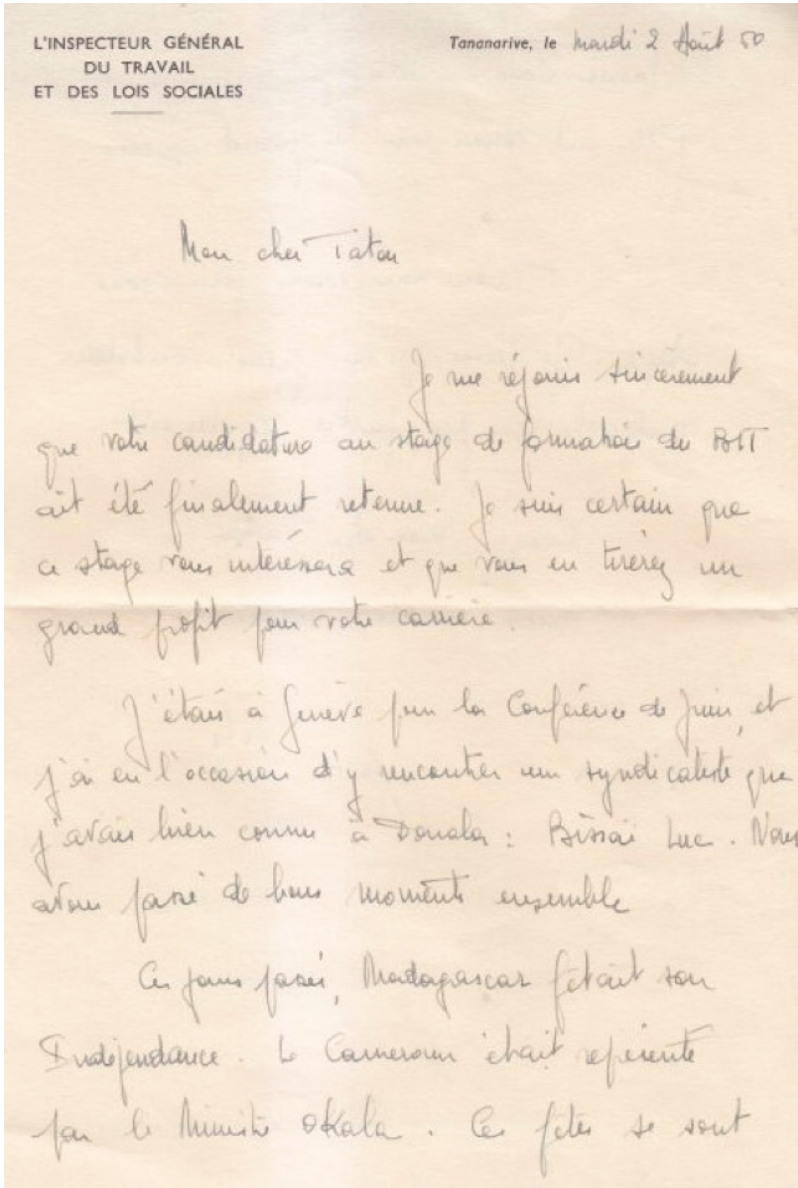 L'INSPECTEUR GÉNÉRAL
DU TRAVAIL
ET DES LOIS SOCIALES
Tananarive, le Mardi 2 Août 60
Mon cher Tatou
Je me réjouis sincèrement
que votre candidature au stage de formation du BIT
ait été finalement retenue. Je suis certain que
ce stage vous intéressera et que vous en tirerez un
grand profit pour votre carrière.
J'étais à Genève pour la Conférence de Juin, et
j'ai eu l'occasion d'y rencontrer un syndicaliste que
j'avais bien connu à Douala : Bissaï Luc. Nous
avons passé de bons moments ensemble
Ces jours passés, Madagascar fêtait son
Indépendance. Le Cameroun était représenté
par le Ministre Okala. Ces fêtes se sont